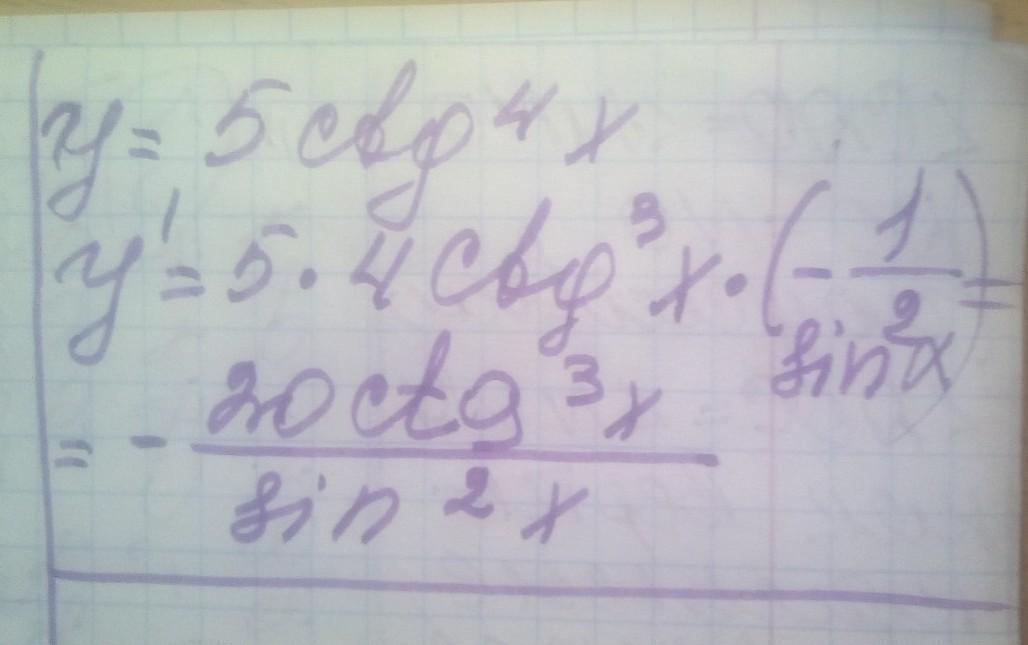 y = 5 ctg⁴ x
y' = 5 · 4 ctg³ x · (- 1/sin² x) =
= - 20 ctg³ x / sin² x